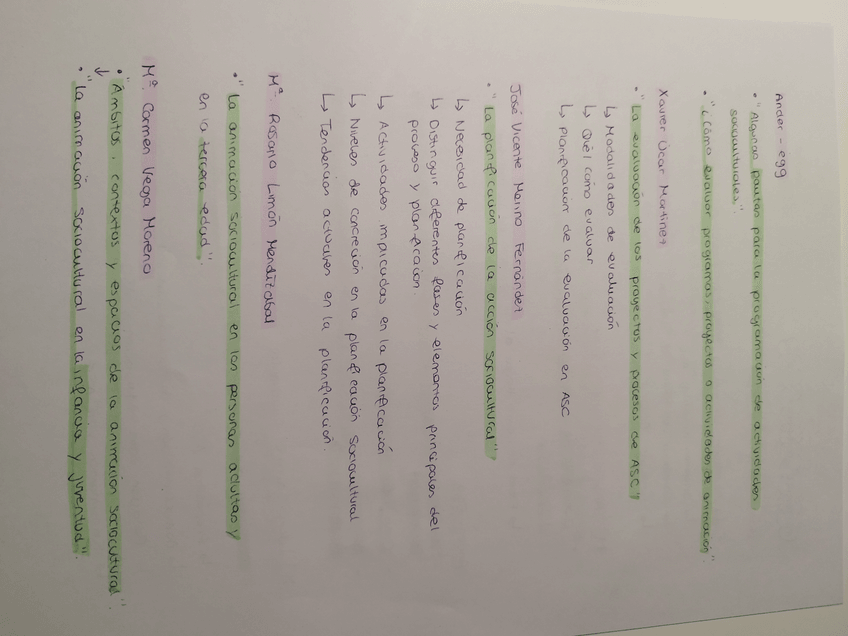 Ander-egg
• "Algunas pautas para la programación de actividades
socioculturales."
• "¿Cómo evaluar programas, proyectos o actividades de animación".
Xavier Úcar Martínez
• "La evaluación de los proyectos y procesos de ASC"
↳ Modalidades de evaluación
↳ Qué / cómo evaluar
↳ Planificación de la evaluación en ASC
José Vicente Merino Fernández
• "La planificación de la acción sociocultural"
↳ Necesidad de planificación
↳ Distinguir diferentes fases y elementos principales del
proceso y planificación.
↳ Actividades implicadas en la planificación
↳ Niveles de concreción en la planificación sociocultural
↳ Tendencias actuales en la planificación.
Mª. Rosario Limón Mendizabal
• "La animación sociocultural en las personas adultas y
en la tercera edad".
Mª. Carmen Vega Moreno
• "Ámbitos, contextos y espacios de la animación sociocultural"
↓
• "La animación sociocultural en la infancia y juventud".